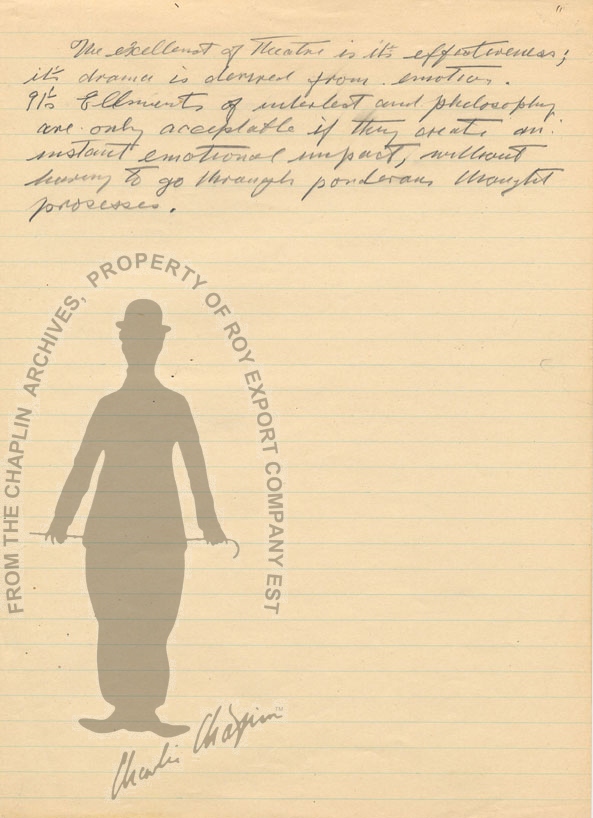 The exellenst of Theatre is it's effectiveness;
it's drama is derived from emotion.
It's Ellments of interlest and philosophy
are only acceptable if they create an
instant emotional impact, without
having to go through ponderous thought
prosesses.
FROM THE CHAPLIN ARCHIVES, PROPERTY OF ROY EXPORT COMPANY EST
Charlie Chaplin ™